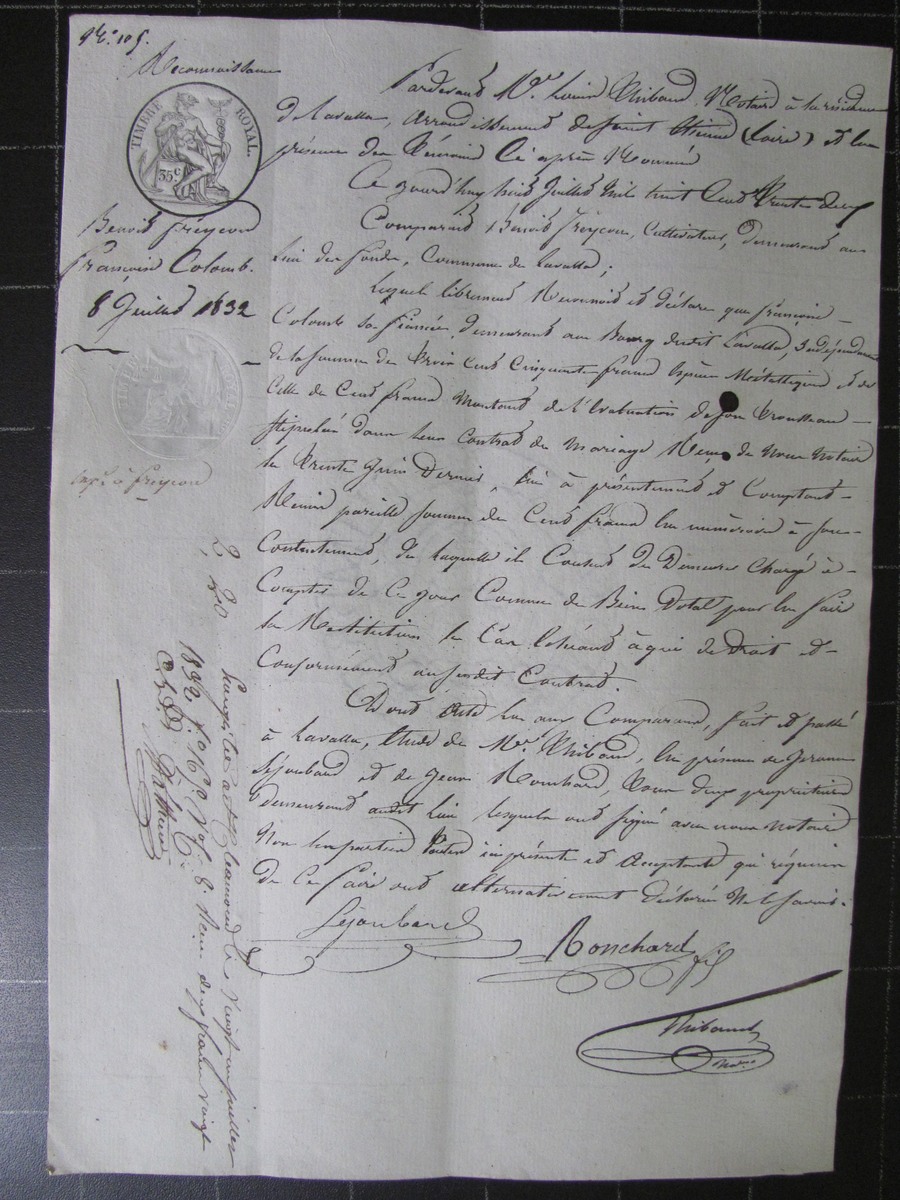 N.° 105.
Reconnaissance
TIMBRE ROYAL.
35c
Benoit Freycon
Françoise Colomb.
8 Juillet 1832
Pardevant Me. Louis Thibaud, Notaire à la résidence
de Lavalla, arrondissement de Saint Etienne (Loire) et en
présence des témoins ci après nommés
Ce jourd'huy huit Juillet mil huit cent trente deux
Comparait Benoit Freycon, cultivateur, demeurant au
lieu des fonds, Commune de Lavalla;
Lequel librement reconnoit et déclare que françoise
Colomb sa fiancée, demeurant au Bourg dudit Lavalla, indépendamment
de la somme de trois cent cinquante francs espèces métalliques et de
celle de cent francs montant de l'évaluation de son trousseau
stipulés dans leur contrat de mariage reçu de nous notaire
le trente Juin dernier, lui à présentement et comptant
remis pareille somme de cent francs en numéraire à son
contentement, de laquelle il consent de demeurer chargé à
compter de ce jour comme de Biens Dotal pour en faire
la restitution le cas échéant à qui de droit et
conformément au susdit contrat.
Dont acte lu aux comparans, fait et passé
à Lavalla, étude de Me. Thibaud, en présence de
Séjoubard et de Jean Ronchard, tous deux propriétaires
demeurant audit lieu lesquels ont signé avec nous notaire
non les parties
de ce faire ont alternativement déclaré ne le savoir.
Séjoubard
Ronchard fils
Thibaud
Nore.
2
20
Enregistré à St Chamond le vingt un juillet
1832. f. 96. Vol. 8 Reçu deux francs vingt